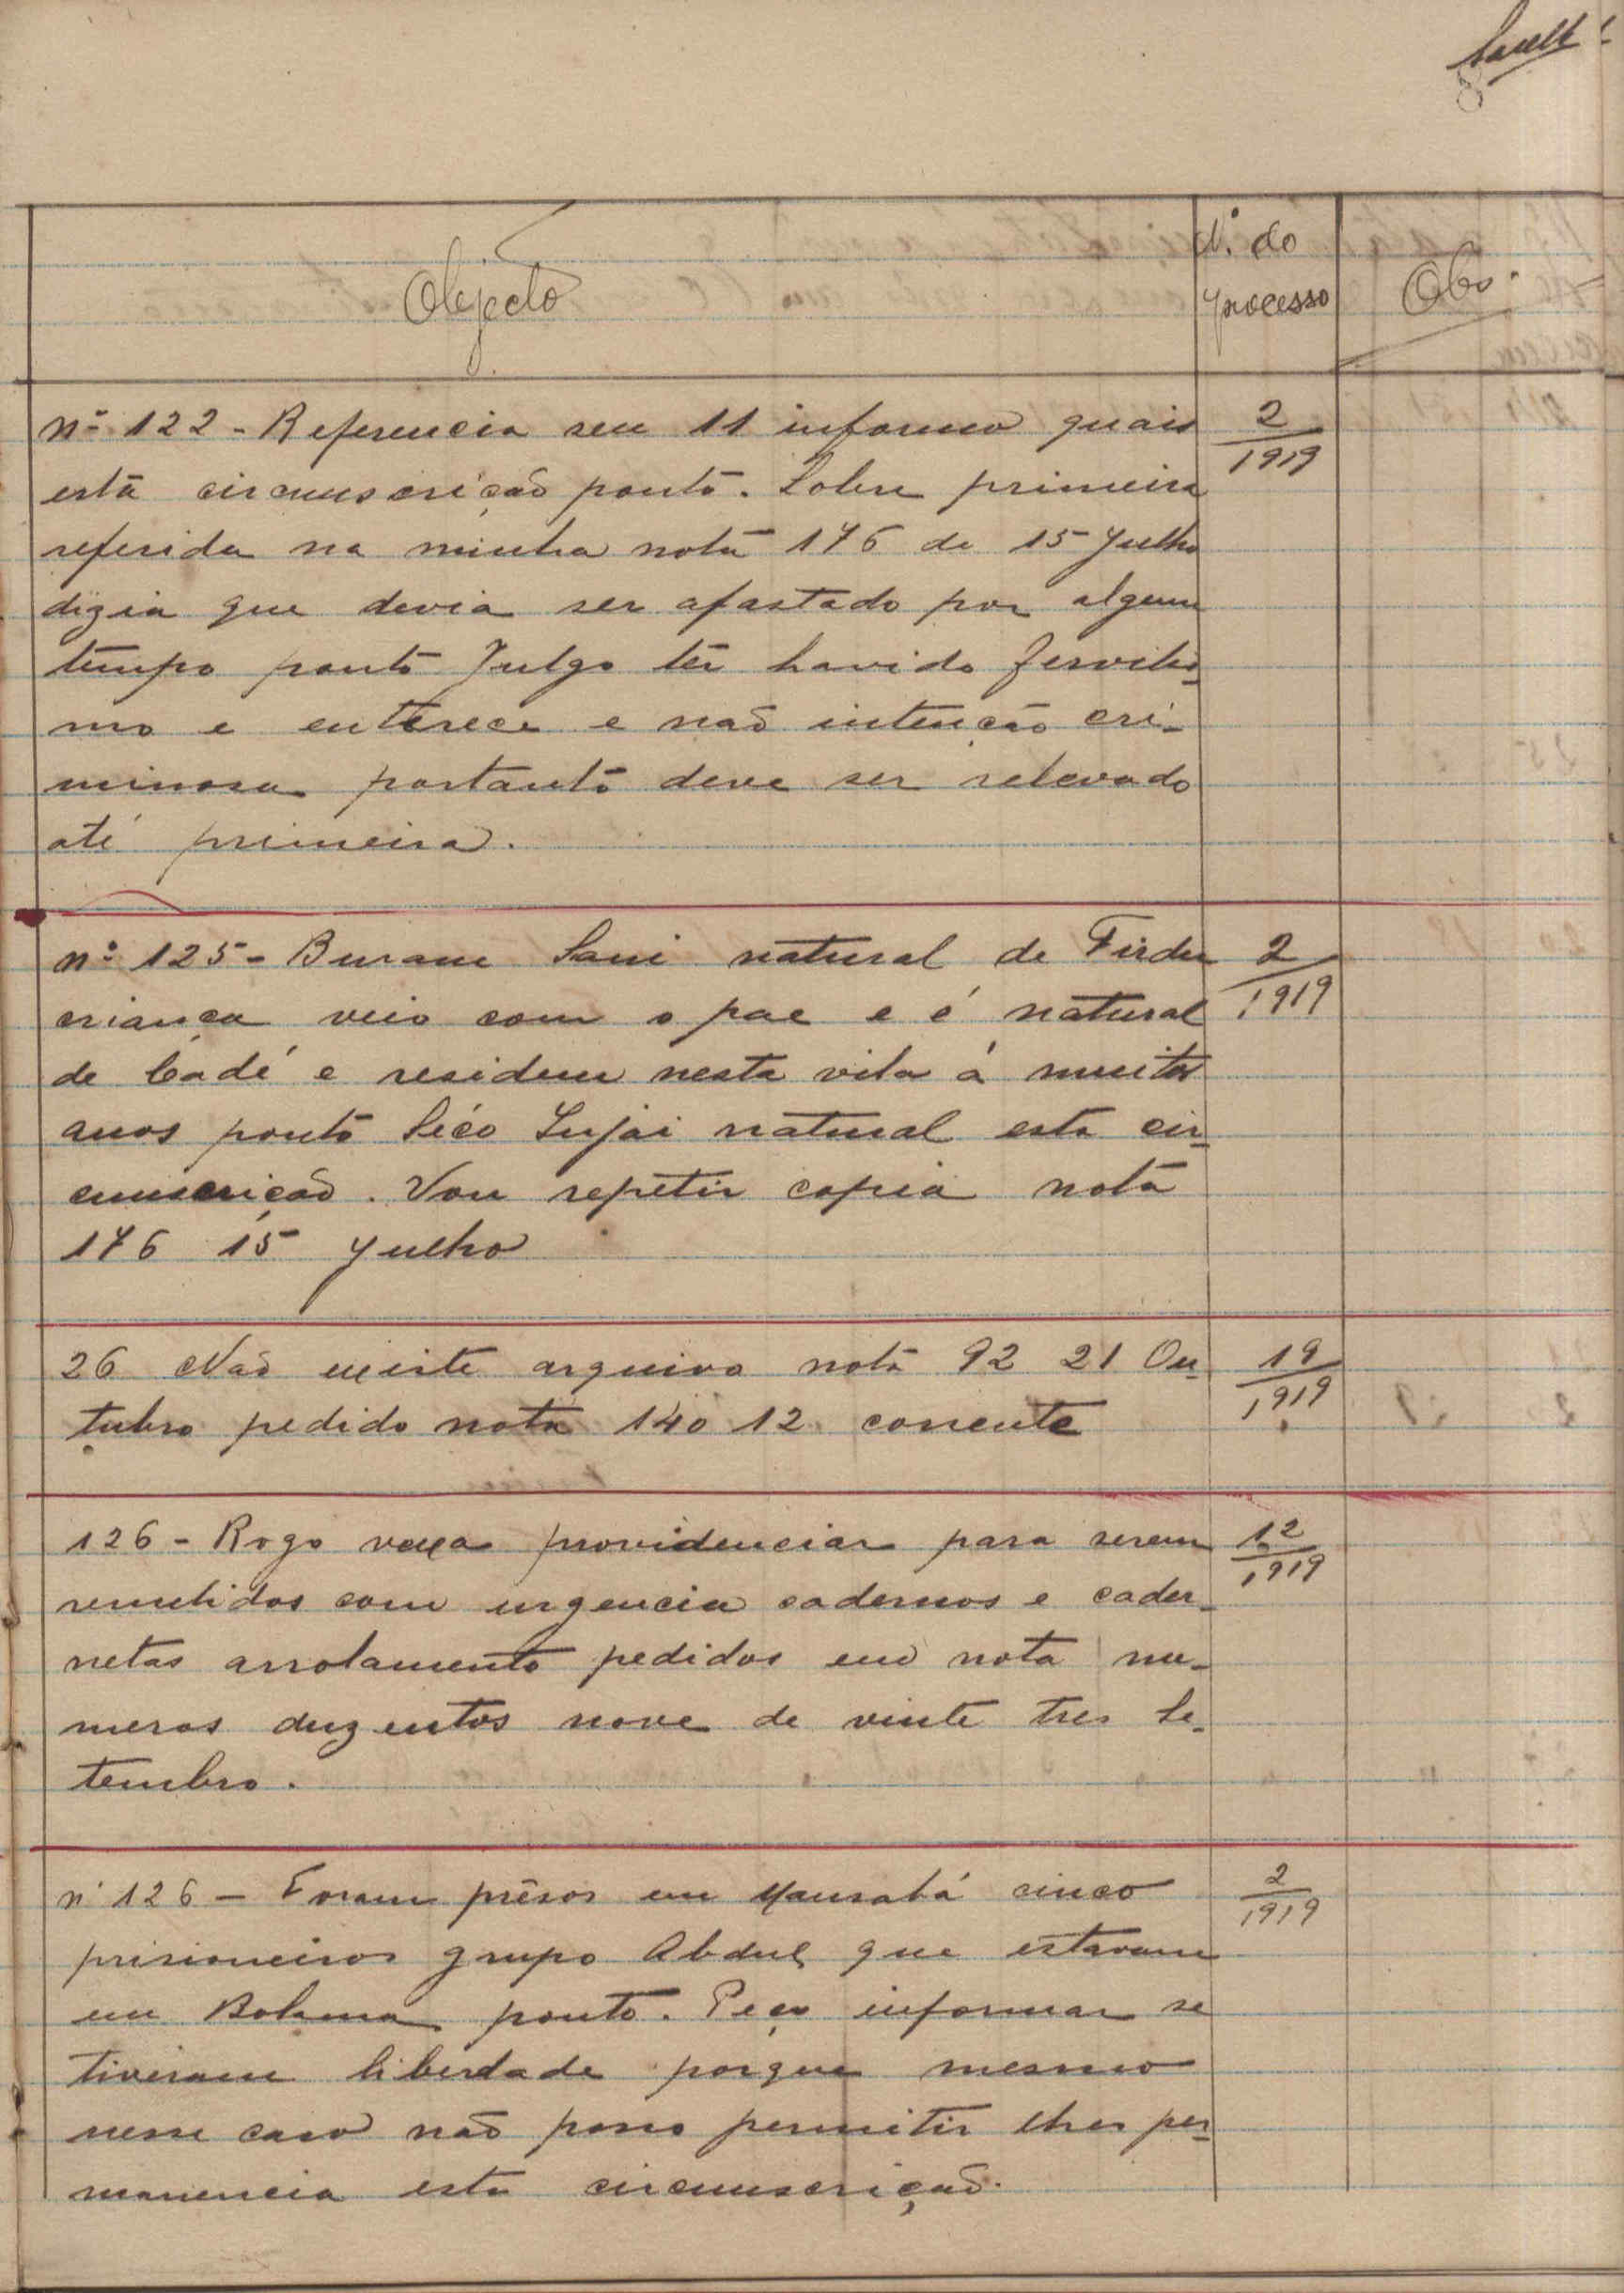 Objecto
N.º do
processo
Obs.
nº 122 - Referencia seu 11 informo quais 2/1919
está circunscrição ponto. Sobre primeira
referida na minha nota 176 de 15 Julho
dizia que devia ser afastado por algum
tempo ponto Julgo ter havido servilis-
mo e enterece e não intenção cri-
minosa portanto deve ser relevado
até primeira.
nº 125 - Burame Sani natural de Firdu 2/1919
criança veio com o pae e é natural
de Cadé e residem nesta vila á muitos
anos ponto Séco Sujai natural esta cir-
cunscrição. Vou repetir copia nota
176 15 Julho
26 Não existe arquivo nota 92 21 Ou- 19/1919
tubro pedido nota 140 12 corrente
126 - Rogo vexa providenciar para serem 12/1919
remetidos com urgencia cadernos e cader-
netas arrolamento pedidos em nota nu-
meros duzentos nove de vinte tres Se-
tembro.
nº 126 - Foram prêsos em Mansabá cinco 2/1919
prisioneiros grupo Abdul que estavam
em Bolama ponto. Peço informar se
tiveram liberdade porque mesmo
nesse caso não posso permitir lhes per-
manencia esta circunscrição.